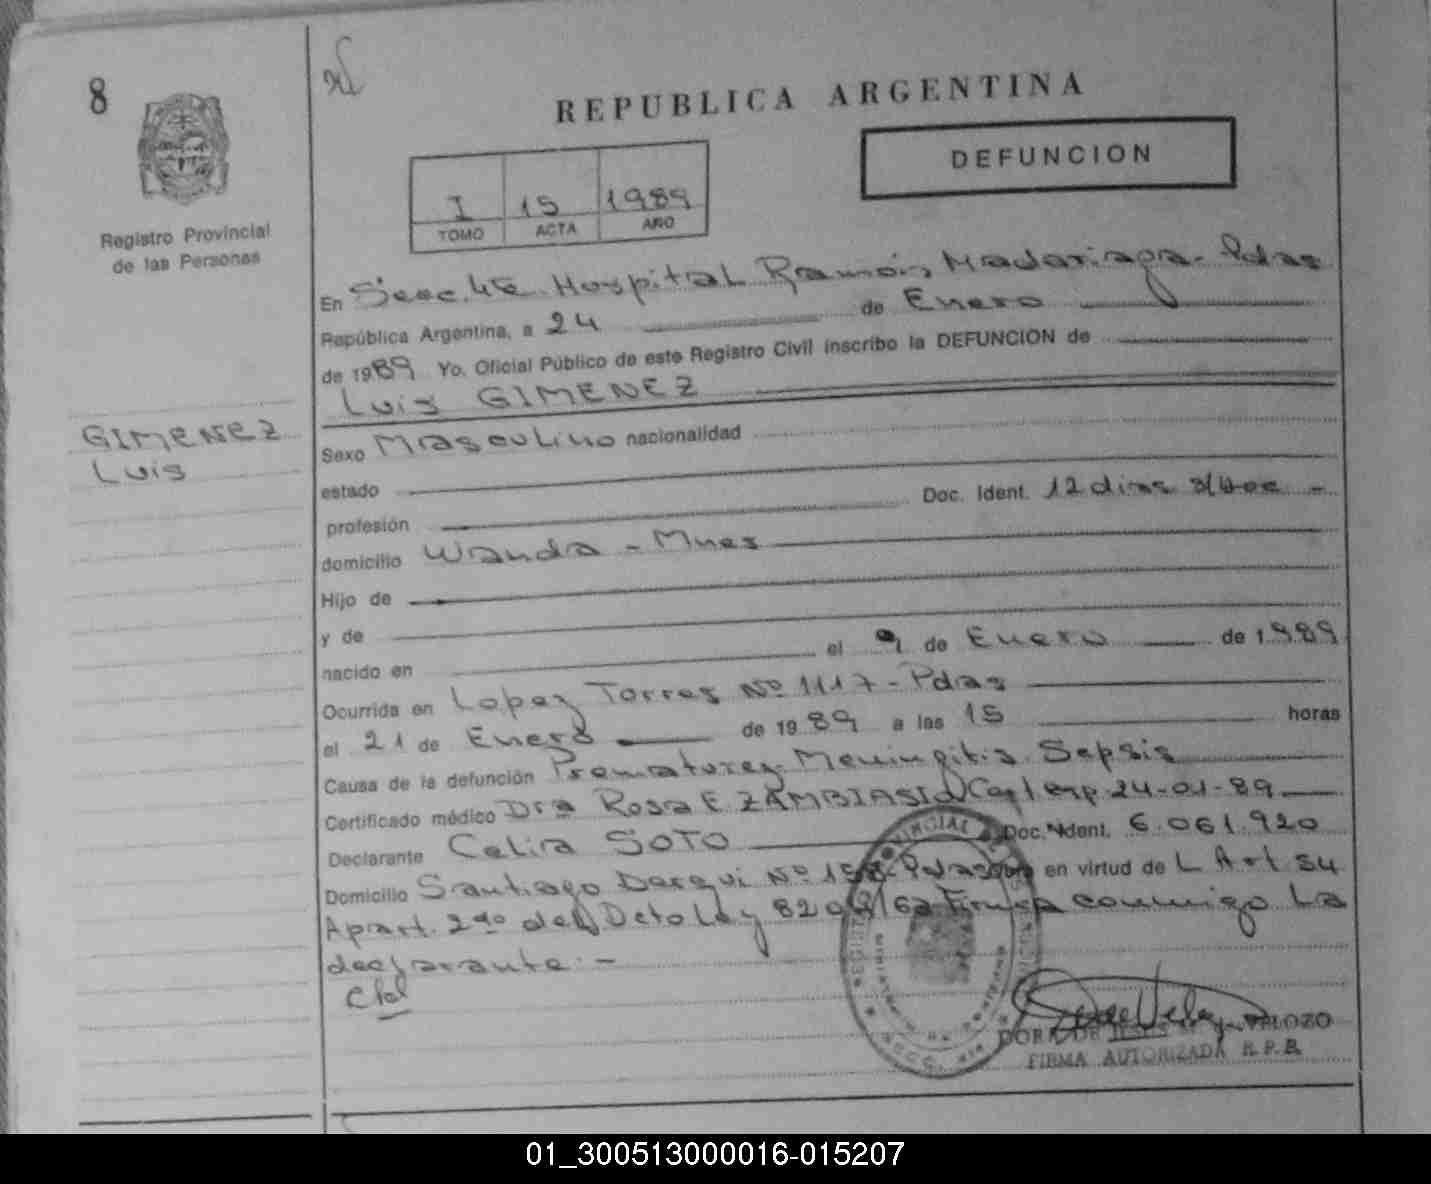 8
REPUBLICA ARGENTINA
DEFUNCION
I 15 1989
TOMO ACTA AÑO
Registro Provincial
de las Personas
En Secc. 4ª Hospital Ramón Madariaga - Pdas
República Argentina, a 24 de Enero
de 1989 Yo, Oficial Público de este Registro Civil inscribo la DEFUNCION de
Luis GIMENEZ
GIMENEZ
Luis
Sexo Masculino nacionalidad
estado
profesión Doc. Ident. 12 dias s/doc -
domicilio Wanda - Mnes
Hijo de
y de
nacido en el 9 de Enero de 1989
Ocurrida en Lopez Torres Nº 1117 - Pdas
el 21 de Enero de 1989 a las 15 horas
Causa de la defunción Prematurez. Meningitis. Sepsis
Certificado médico Dra Rosa E ZAMBIASIO Cert exp. 24-01-89
Declarante Celia SOTO Doc. Ident. 6.061.920
Domicilio Santiago Derqui Nº 158 - Pdas en virtud de L Art 54
Apart. 2do del Dcto Ley 8204/63 Firma conmigo La
declarante. -
VELOZO
FIRMA AUTORIZADA R.P.P.
01_300513000016-015207